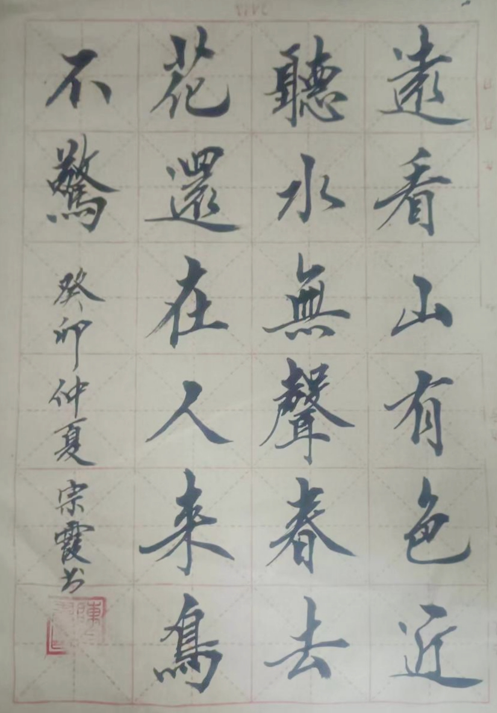 遠看山有色近
聽水無聲春去
花還在人來鳥
不驚
癸卯仲夏宗霞书